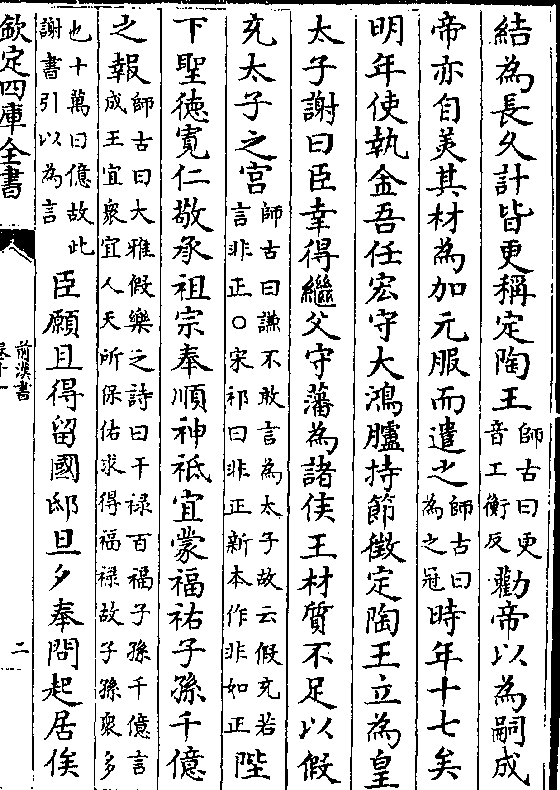 結為長久計皆更稱定陶王師古曰更音工衡反勸帝以為嗣成
帝亦自美其材為加元服而遣之師古曰為之冠時年十七矣
明年使執金吾任宏守大鴻臚持節徵定陶王立為皇
太子謝曰臣幸得繼父守藩為諸侯王材質不足以假
充太子之宮師古曰謙不敢言為太子故云假充若言非正○宋祁曰非正新本作非如正陛
下聖徳寛仁敬承祖宗奉順神祗宜蒙福祐子孫千億
之報師古曰大雅假樂之詩曰干禄百福子孫千億言成王宜衆宜人天所保佑求得福禄故子孫衆多
也十萬曰億故此謝書引以為言臣願且得留國邸旦夕奉問起居俟
欽定四庫全書
前漢書
二